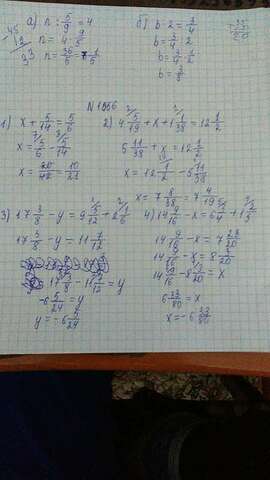 а) n : 5/9 = 4
n = 4 · 9/5
n = 36/5 = 7 1/5
б) b · 2 = 3/4
b = 3/4 : 2
b = 3/4 · 1/2
b = 3/8
1) x + 5/14 = 5/6
x = 5/6 - 5/14
x = 20/42 = 10/21
2) 4 5/19 + x + 1 1/38 = 12 1/2
5 11/38 + x = 12 1/2
x = 12 1/2 - 5 11/38
x = 7 8/38 = 7 4/19
3) 17 3/8 - y = 9 5/12 + 2 1/6
17 3/8 - y = 11 7/12
17 3/8 - 11 7/12 = y
-6 5/24 = y
y = -6 5/24
4) 14 9/16 - x = 6
14 9/16 - x = 7 23/20
14 9/16 - x = 8 3/20
14 9/16 - 8 3/20 = x
6 33/80 = x
x = -6 33/80